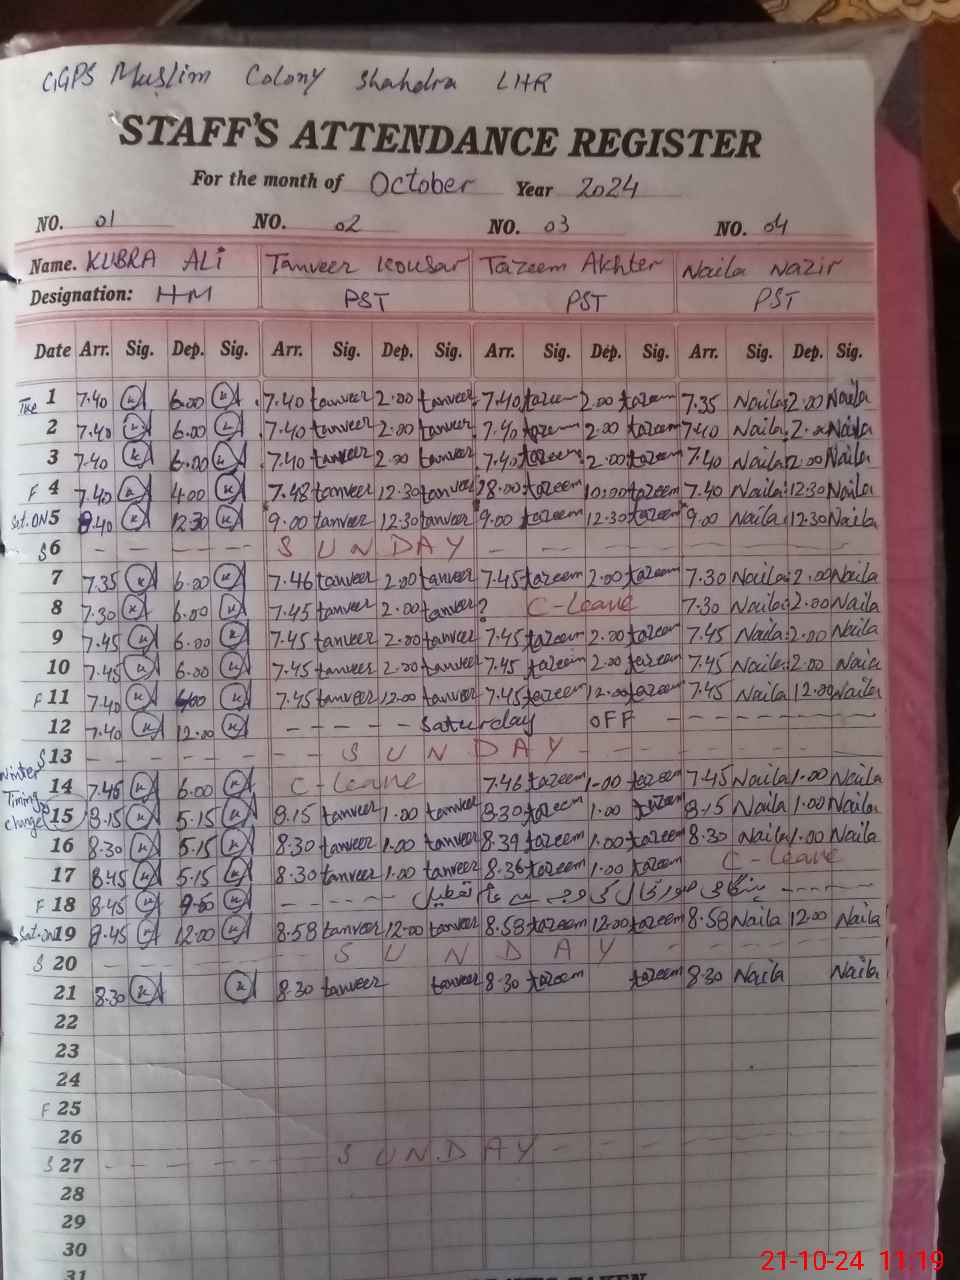 GGPS Muslim Colony Shahdra LHR
STAFF'S ATTENDANCE REGISTER
For the month of October Year 2024
NO. 01 NO. 02 NO. 03 NO. 04
Name. KUBRA ALi Tanveer Kousar Tazeem Akhter Naila Nazir
Designation: HM PST PST PST
Date Arr. Sig. Dep. Sig. Arr. Sig. Dep. Sig. Arr. Sig. Dep. Sig. Arr. Sig. Dep. Sig.
Tue 1 7.40 6.00 7.40 tanveer 2.00 tanveer 7.40 tazeem 2.00 tazeem 7.35 Naila 2.00 Naila
2 7.40 6.00 7.40 tanveer 2.00 tanveer 7.40 tazeem 2.00 tazeem 7.40 Naila 2.00 Naila
3 7.40 6.00 7.40 tanveer 2.00 tanveer 7.40 tazeem 2.00 tazeem 7.40 Naila 2.00 Naila
F 4 7.40 4.00 7.48 tanveer 12.30 tanveer 8.00 tazeem 10:00 tazeem 7.40 Naila 12.30 Naila
Sat.ON 5 12.30 9.00 tanveer 12.30 tanveer 9.00 tazeem 12.30 tazeem 9.00 Naila 12.30 Naila
S 6 - - - - S U N D A Y - - - - - - -
7 7.35 6.00 7.46 tanveer 2.00 tanveer 7.45 tazeem 2.00 tazeem 7.30 Naila 2.00 Naila
8 7.30 6.00 7.45 tanveer 2.00 tanveer ? C-Leave 7.30 Naila 2.00 Naila
9 7.45 6.00 7.45 tanveer 2.00 tanveer 7.45 tazeem 2.00 tazeem 7.45 Naila 2.00 Naila
10 7.45 6.00 7.45 tanveer 2.00 tanveer 7.45 tazeem 2.00 tazeem 7.45 Naila 2.00 Naila
F 11 7.40 7.45 tanveer 12.00 tanveer 7.45 tazeem 12.00 tazeem 7.45 Naila 12.00 Naila
12 7.40 12.00 - - - - Saturday OFF - - - - - - -
S 13 - - - - - - S U N D A Y - - - - - -
Winter Timing change
14 7.45 6.00 C-Leave 7.46 tazeem 1.00 tazeem 7.45 Naila 1.00 Naila
15 8.15 5.15 8.15 tanveer 1.00 tanveer 8.30 tazeem 1.00 tazeem 8.15 Naila 1.00 Naila
16 8.30 5.15 8.30 tanveer 1.00 tanveer 8.39 tazeem 1.00 tazeem 8.30 Naila 1.00 Naila
17 8.45 5.15 8.30 tanveer 1.00 tanveer 8.36 tazeem 1.00 tazeem C-Leave
F 18 8.45 - - - - - ہنگامی صورتحال کی وجہ سے عام تعطیل - - - - -
Sat.on 19 12.00 8.58 tanveer 12.00 tanveer 8.58 tazeem 12.00 tazeem 8.58 Naila 12.00 Naila
S 20 - - - - - S U N D A Y - - - - - -
21 8.30 8.30 tanveer tanveer 8.30 tazeem tazeem 8.30 Naila Naila
22
23
24
F 25
26
S 27 - - - - - S U N D A Y - - - - - -
28
29
30
31
TAKEN
21-10-24 11:19